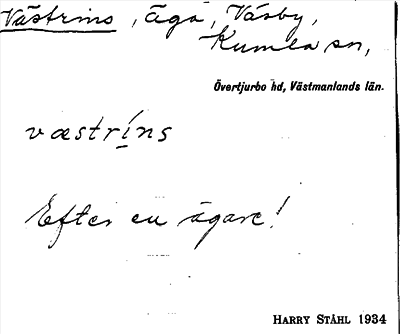 Västrins, äga, Väsby,
Kumla sn,
Övertjurbo hd, Västmanlands län.
væstríns
Efter en ägare!
HARRY STÅHL 1934